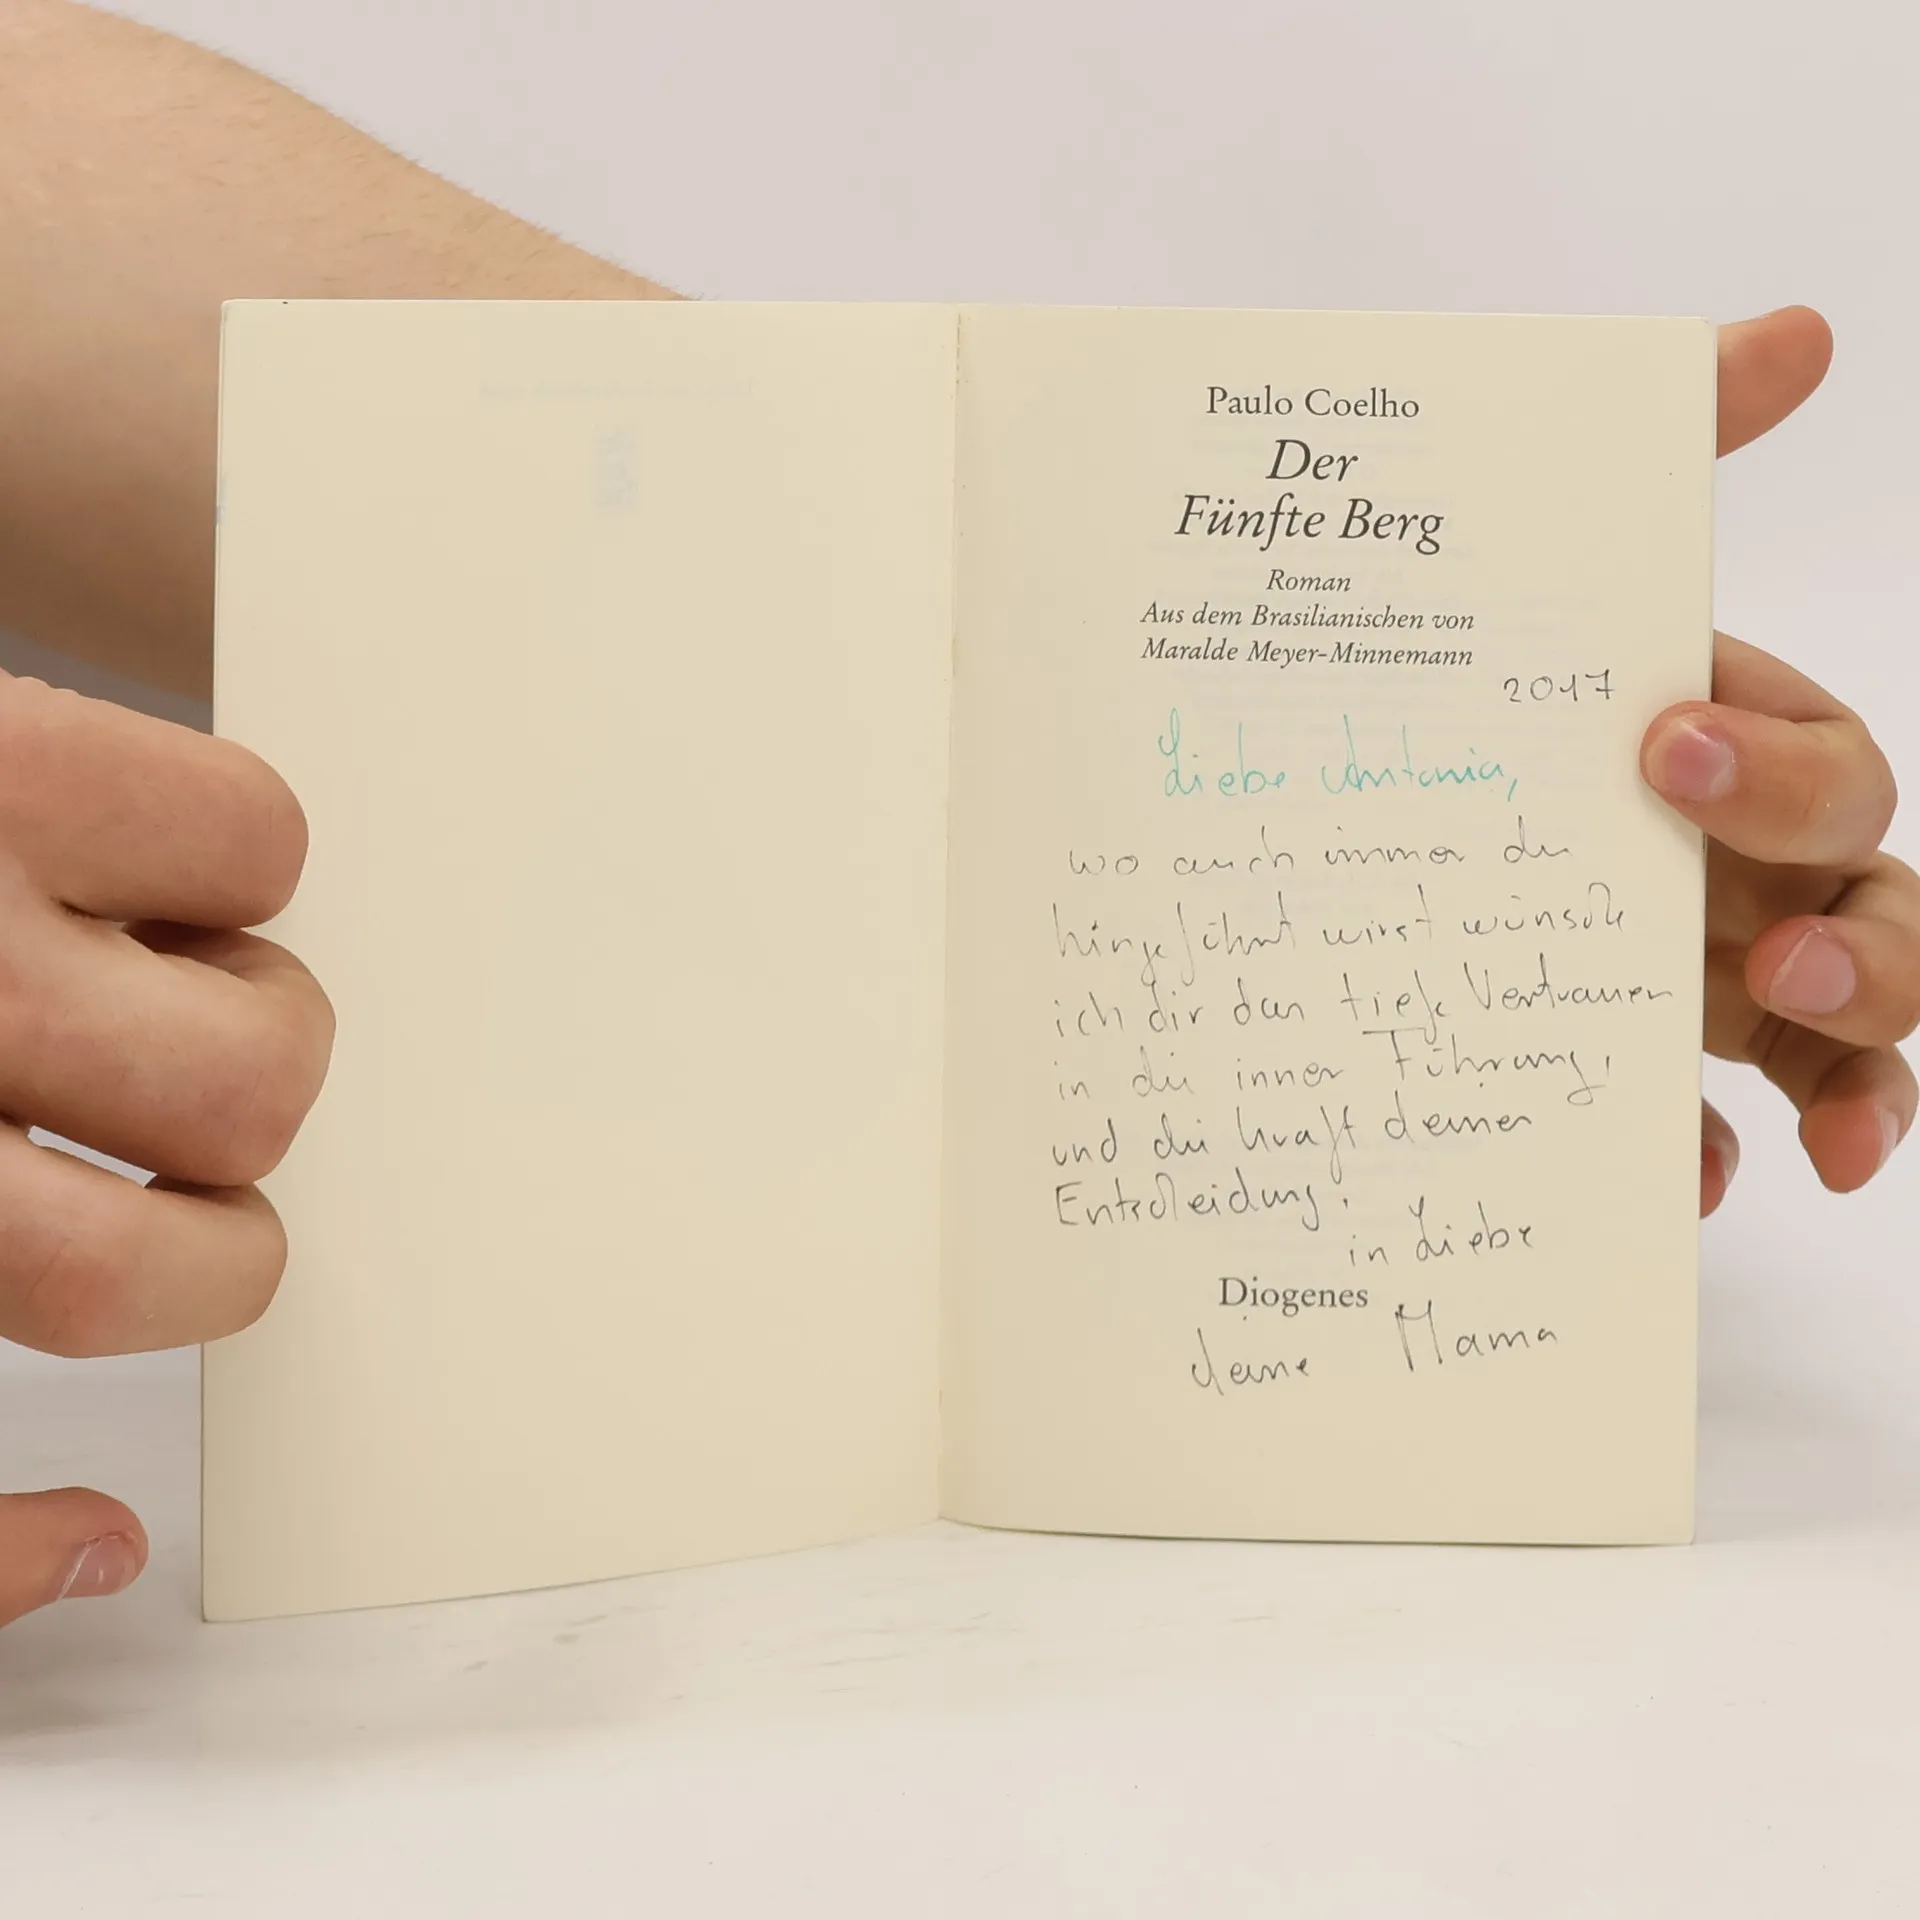 Paulo Coelho
Der
Fünfte Berg
Roman
Aus dem Brasilianischen von
Maralde Meyer-Minnemann
2017
Liebe Antonia,
wo auch immer du
hingeführt wirst wünsche
ich dir das tiefe Vertrauen
in die innere Führung,
und die kraft deiner
Entscheidung.
in Liebe
Diogenes
deine Mama